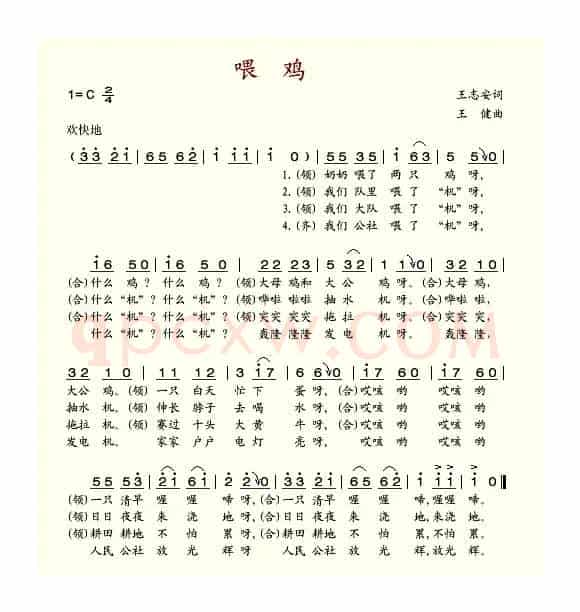 喂 鸡
1=C 2/4
王志安词
王 健曲
欢快地
(3̇3̇ 2̇1̇ | 65 62̇ | 1̇ 1̇1̇ | 1̇ 0) | 55 35 | 1̇ 63 | 5 50 |
1.(领)奶奶 喂了 两 只 鸡 呀,
2.(领)我们 队里 喂 了 “机”呀,
3.(领)我们 大队 喂 了 “机”呀,
4.(齐)我们 公社 喂 了 “机”呀,
1̇6 50 | 1̇6 50 | 22 23 | 5 32 | 1 10 | 32 10 |
(合)什么 鸡? 什么 鸡? (领)大母 鸡和 大 公 鸡 呀。(合)大母 鸡,
(合)什么“机”? 什么“机”? (领)哗啦 啦啦 抽 水 机 呀。(合)哗啦 啦,
(合)什么“机”? 什么“机”? (领)突突 突突 拖 拉 机 呀。(合)突突 突,
什么“机”? 什么“机”? 轰隆 隆隆 发 电 机 呀。 轰隆 隆
32 10 | 55 53 | 2 3 1̇7 | 6 60 | 1̇7 60 | 1̇7 60 |
大公 鸡。(领)一只 白天 忙 下 蛋 呀,(合)哎咳 哟 哎咳 哟
抽水 机。(领)伸长 脖子 去 喝 水 呀,(合)哎咳 哟 哎咳 哟
拖拉 机。(领)赛过 十头 大 黄 牛 呀,(合)哎咳 哟 哎咳 哟
发电 机。 家家 户户 电 灯 亮 呀, 哎咳 哟 哎咳 哟
55 53 | 2̇1̇ 61̇ | 2̇ 2̇0 | 55 53 | 2̇1̇ 62̇ | 1̇ 1̇1̇ | 1̇ 0 ‖
(领)一只 清早 喔 喔 啼 呀,(合)一只 清早 喔 喔 啼,喔喔 啼。
(领)日日 夜夜 来 浇 地 呀,(合)日日 夜夜 来 浇 地,来浇 地。
(领)耕田 耕地 不 怕 累 呀,(合)耕田 耕地 不 怕 累,不怕 累。
人民 公社 放 光 辉 呀 人民 公社 放 光 辉,放光 辉。